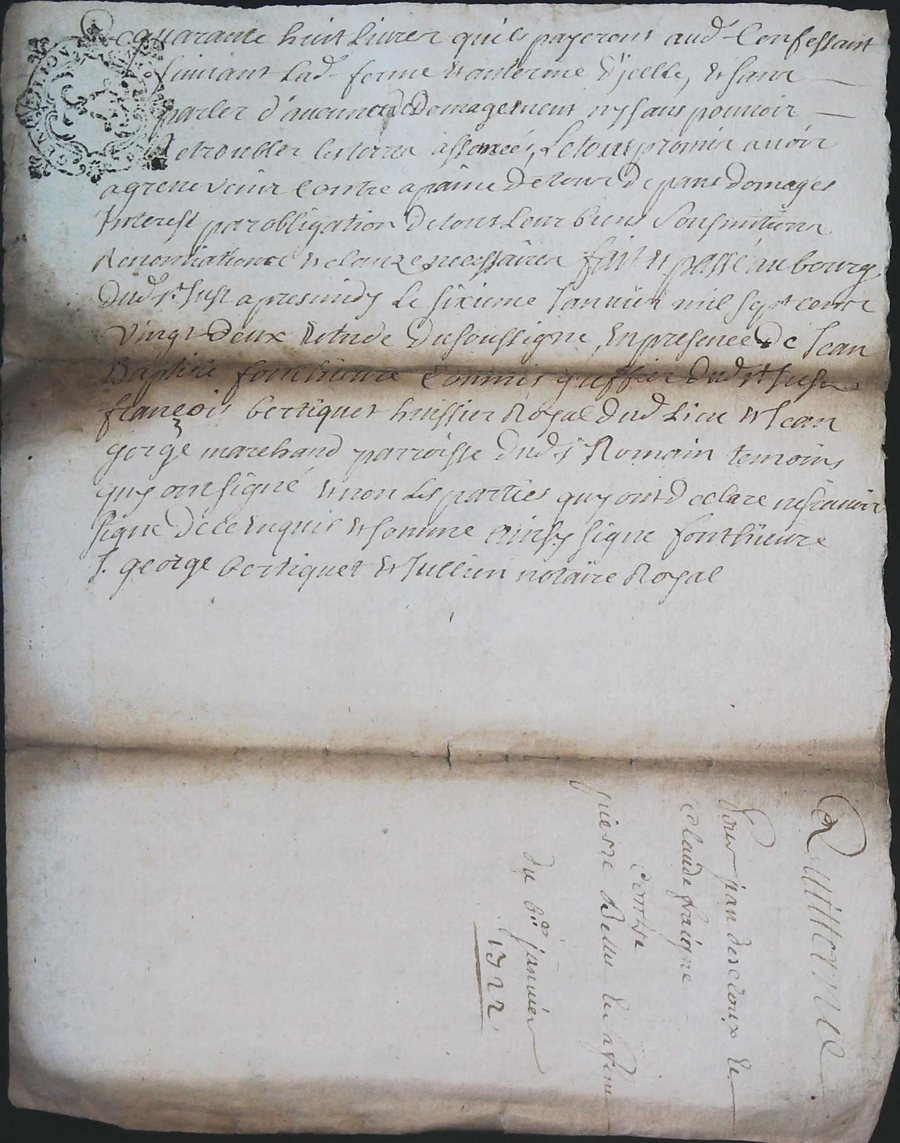 quarante huit Livres quils payeront aud. Confessant
suivant Lad. ferme & auterme d'jcelle, & sans
parler d'aucun dedomagement ny sans pouvoir
troubler les terres affermée, Letout promis avoir
agre ne venir Contre apaine de tous depans domages
Interest par obligation detout Leur biens Sousmitions
Renontiations & clauze necessaires fait & passé au bourg
Dud. st. Just apres midy Le sixieme Janvier mil sept cent
vingt deux Estude du soussigne, en presence de Jean
Baptiste fonthieure Commis greffier dud. st. Just
françois bertiquet huissier Royal dud. Lieu & Jean
george marchand parroisse dud. st. Romain temoins
quy ont signé & non Les parties quy ont declare ne scavoir
signe de ce enquis & somme ainsy signe fonthieure
J. george bertiquet & Jullien notaire Royal
pour jean descloux &
claude
contre
pierre
du 6e. janvier
1722